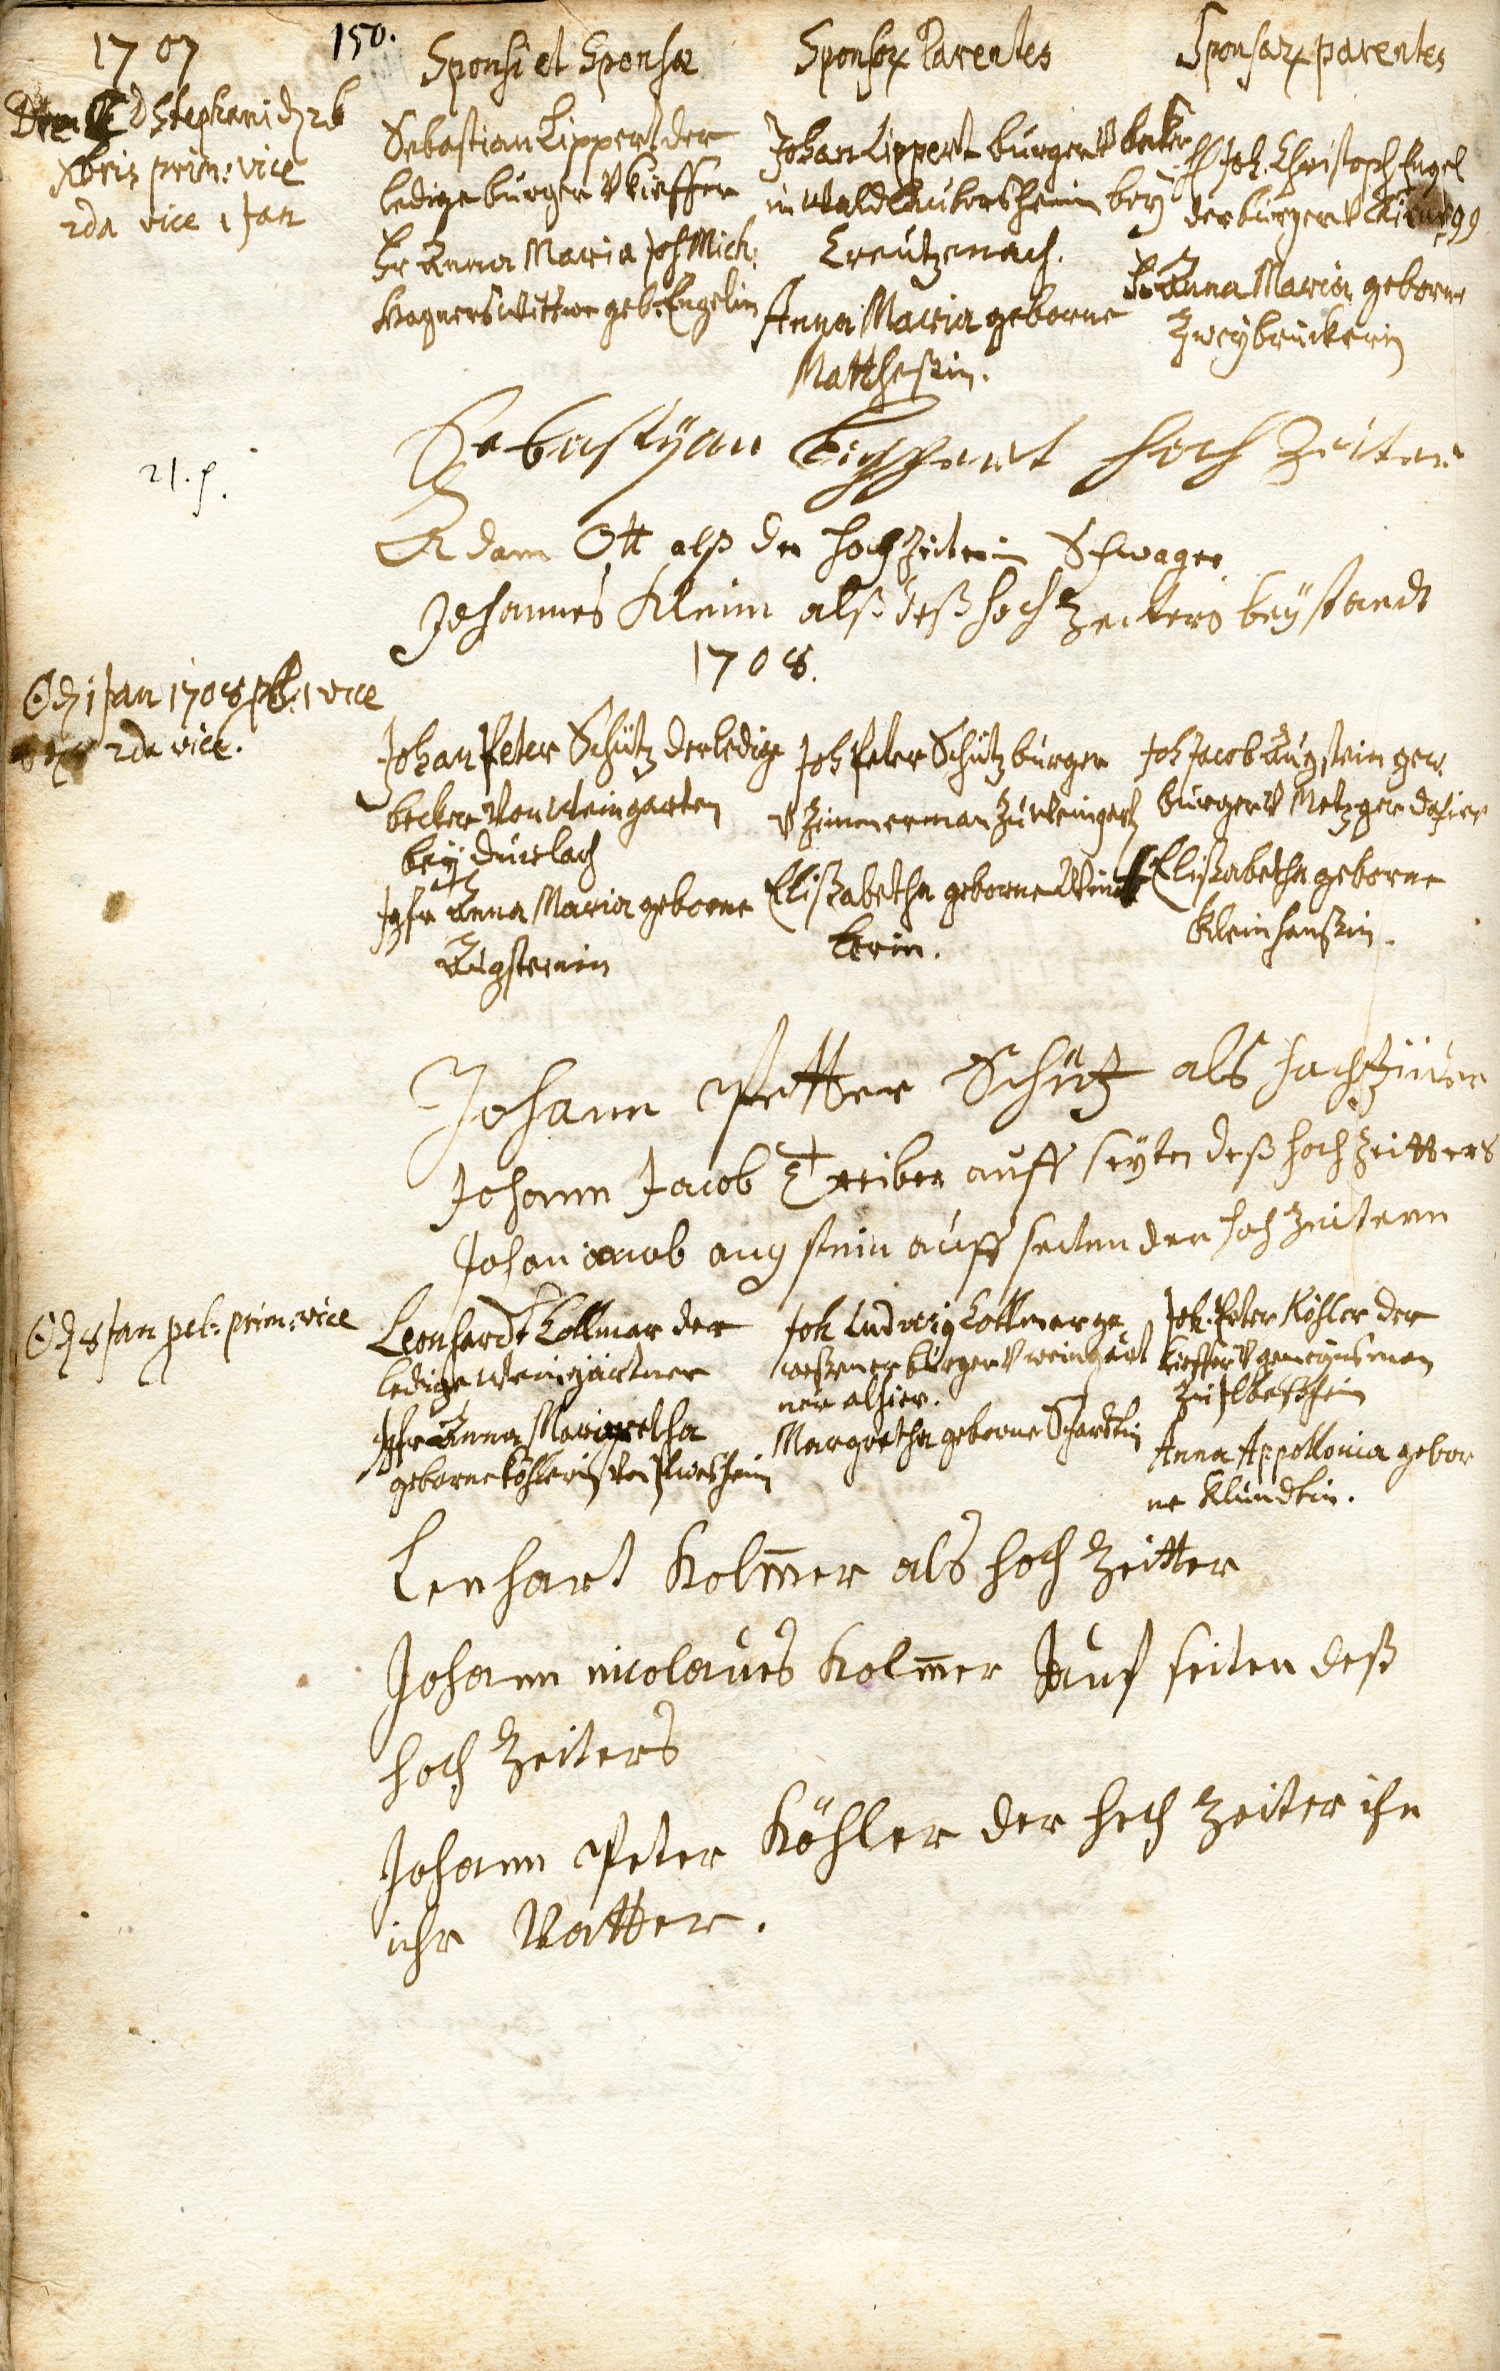 1707
150.
Sponsi et Sponsæ
Sponsor. Parentes
Sponsar. parentes
D Stephani d. 26
Xbris prim: vice
2da vice 1 Jan
Sebastian Lippert der
ledige burger v kieffer
Fr Anna Maria Joh Mich:
Wagners Wittwe geb. Engelin
Johan Lippert burger v becker
in Waldlaubersheim bey
Creutzenach.
Anna Maria geborne
Mattheßin.
H Joh. Christoph Engel
der burger v
Fr Anna Maria geborne
Zweybrückerin
21. p.
Sebastyan Lippert hoch Zeiter
Adam Ott alß der hochzeiterin Schwager
Johannes Klein alß deß hoch Zeiters beystandt
1708.
d. 1 Jan 1708 pb. 1 vice
2da vice.
Johan Peter Schütz der ledige
becker von Weingarten
bey Durlach
Jgfr Anna Maria geborne
Augsteinin
Joh Peter Schütz burger
v Zimmerman zu Weingart
Elißabetha geborne Winck
lerin.
Joh Jacob Augstein gew.
burger v Metzger dahier
Elißabetha geborne
Kleinhanßin.
Johann Petter Schütz als hachziter
Johann Jacob Treiber auff seyten deß hoch Zeitters
Johan jacob aug stein auff seiten der hoh Zeitern
d. 8 Jan pcl: prim: vice
Leonhardt Collmar der
ledige Weingärtner
Jgfr Anna Margretha
geborne Köhlerin von Ilvesheim
Joh Ludwig Collmer ge
weßener burger v weingärt
ner alhier.
Margretha geborne Schardtin
Joh. Peter Köhler der
kieffer v gemeinsman
zu Ilbeßheim
Anna Appollonia gebor
ne Klundtin.
Lenhart Kolm̅er als hoch Zeitter
Johann nicolaues Kolm̅er auf seiten deß
hoch Zeiters
Johann Peter Köhler der hoch Zeiter ihn
ihr Vatter.